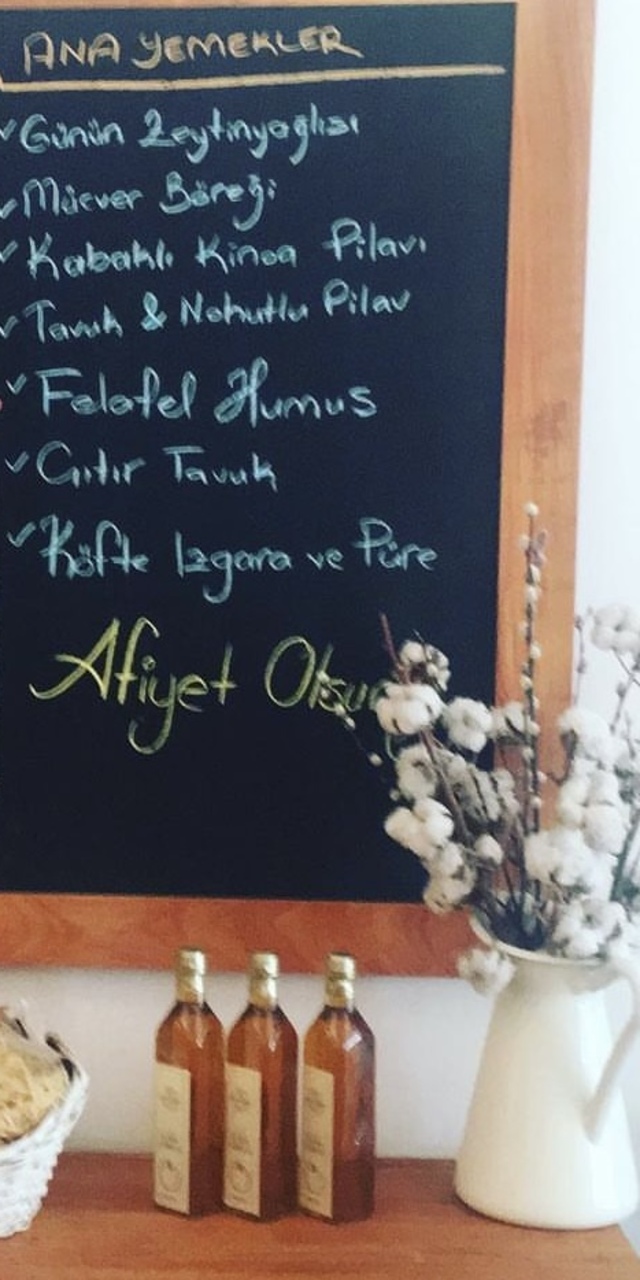 ANA YEMEKLER
✓ Günün Zeytinyağlısı
✓ Mücver Böreği
✓ Kabaklı Kinoa Pilavı
✓ Tavuk & Nohutlu Pilav
✓ Felafel Humus
✓ Çıtır Tavuk
✓ Köfte Izgara ve Püre
Afiyet Olsun